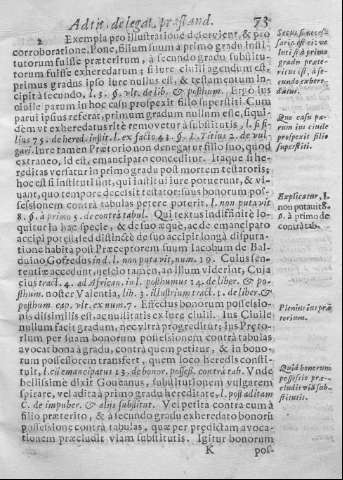 Ad tit. de legat. præstand. 73
2 Exempla pro illustratione deservient, & pro
corroboratione. Pone, filium suum à primo gradu insti-
tutorum fuisse præteritum, à secundo gradu substitu-
torum fuisse exheredatum; si iure ciuili agendum est,
primus gradus ipso iure nullus est, & testamentum in-
cipit à secundo, l. 3. §. vlt. de lib. & posthum. Ergo ius
ciuile parum in hoc casu prospexit filio superstiti. Cum
parui ipsius referat, primum gradum nullum esse, siqui-
dem vt exheredatus ritè remouetur à substitutis, l. si fi-
lius 75. de hered. instit. l. ex facto 42. §. L. Titius 2. de vul-
gari. Iure tamen Prætorio non denegatur filio suo, quod
extraneo, id est, emancipato conceditur. Itaque si he-
reditas versatur in primo gradu post mortem testatoris;
hoc est si instituti sunt, qui instituti iure potuerunt, & vi-
uant, quo tempore decessit testator: suus bonorum pos-
sessionem contra tabulas petere poterit, l. non putauit
8. §. à primo 5. de contra tabul. Qui textus indefinitè lo-
quitur in hac specie, & de suo æquè, ac de emancipato
accipi potest, sed distinctè de suo accipit longa disputa-
tione habita post Præceptorem suum Iacobum de Bal-
duino Gofredus ind. l. non putauit, num. 29. Cuius sen-
tentiæ accedunt, nescio tamen, an illum viderint, Cuja-
cius tract. 4. ad African. in l. posthumus 14. de liber. & po-
sthum. noster Valentia, lib. 3. illustrium tract. 1. de liber. &
posthum. cap. vlt. ex num. 7. Effectus bonorum possessio-
nis dissimilis est, ac nullitatis ex iure ciuili. Ius Ciuile
nullum facit gradum, nec vltra progreditur; Ius Præto-
rium per suam bonorum possessionem contrà tabulas
auocat bona à gradu, contra quem petitur, & in bono-
rum possessorem transfert, quem loco heredis consti-
tuit, l. cùm emancipatus 13. de bonor. possess. contrà tab. Vnde
bellissimè dixit Goueanus, substitutionem vulgarem
spirare, vel adita à primo gradu hereditate, l. post aditam
C. de impuber. & aliis substitut. Vel petita contra eum à
filio præterito, & à secundo gradu exheredato bonorum
possessione contrà tabulas, quæ per prædictam auoca-
tionem præcludit viam substitutis. Igitur bonorum
K pos-
Quo casu pa-
rum ius ciuile
prospexit filio
superstiti.
Explicatur, l.
non putauit 8.
§. à primo de
contrà tab.
Plenius ius præ-
torium.
Quia bonorum
possessio præ-
cludit viã sub-
stitutis.